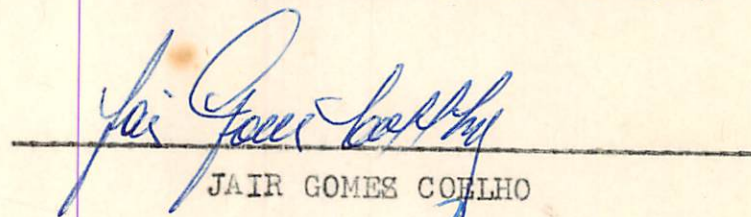 Jair Gomes Coelho
JAIR GOMES COELHO